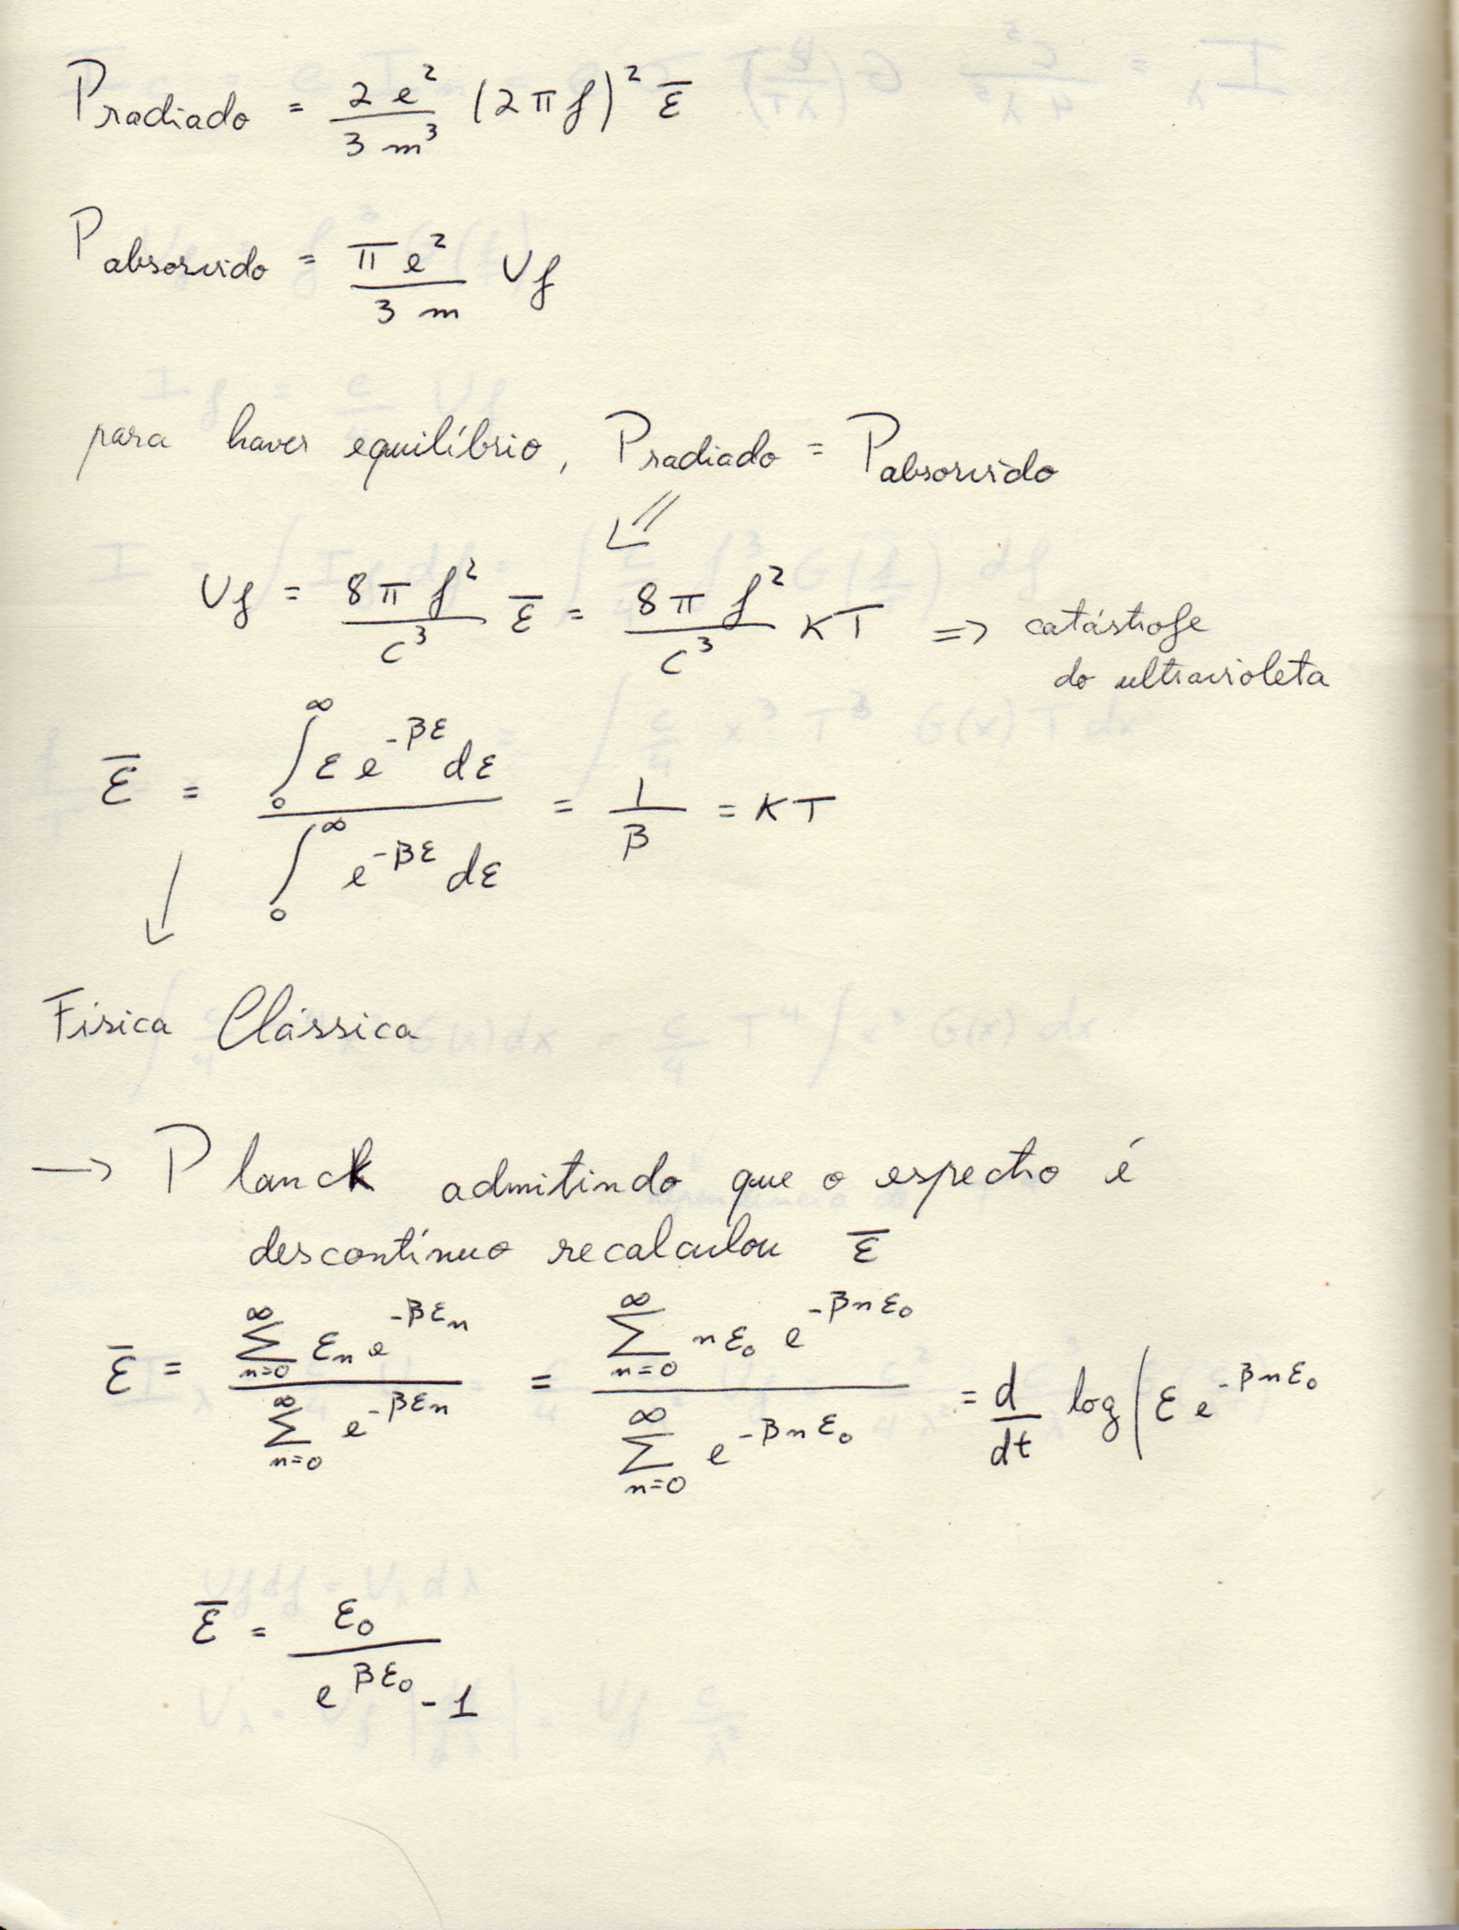 P radiado = 2 e² / 3 m³ (2 π f)² ε̄
P absorvido = π e² / 3 m U f
para haver equilíbrio, P radiado = P absorvido
⇙
U f = 8 π f² / c³ ε̄ = 8 π f² / c³ K T ⇒ catástrofe
do ultravioleta
ε̄ = ∫₀^∞ ε e^{-βε} dε / ∫₀^∞ e^{-βε} dε = 1 / β = K T
↓
Física Clássica
→ Planck admitindo que o espectro é
descontínuo recalculou ε̄
ε̄ = ∑_{n=0}^∞ εn e^{-βεn} / ∑_{n=0}^∞ e^{-βεn} = ∑_{n=0}^∞ nε₀ e^{-βnε₀} / ∑_{n=0}^∞ e^{-βnε₀} = d / dt log ( ε e^{-βnε₀}
ε̄ = ε₀ / e^{βε₀} - 1